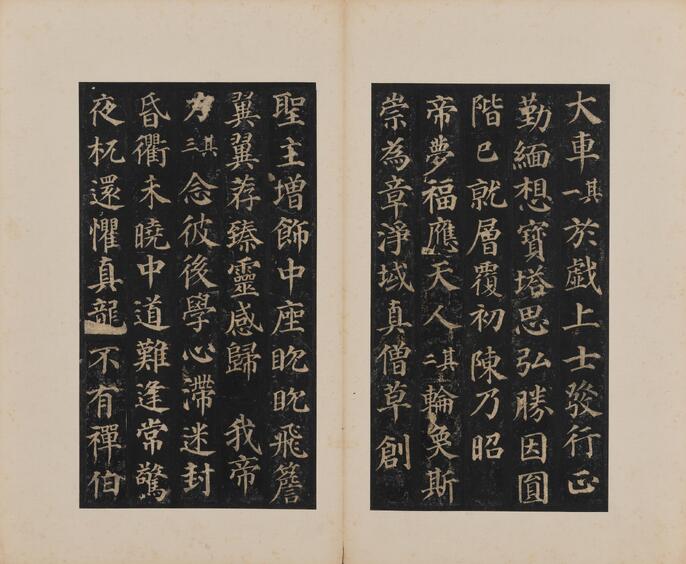 大車其一於戯上士發行正
勤緬想寶塔思弘勝因圓
階已就層覆初陳乃昭
帝夢福應天人其二輪奐斯
崇為章淨域真僧草創
聖主增飾中座眈眈飛簷
翼翼荐臻靈感歸我帝
力其三念彼後學心滯迷封
昏衢未曉中道難逢常驚
夜杌還懼真龍不有禪伯